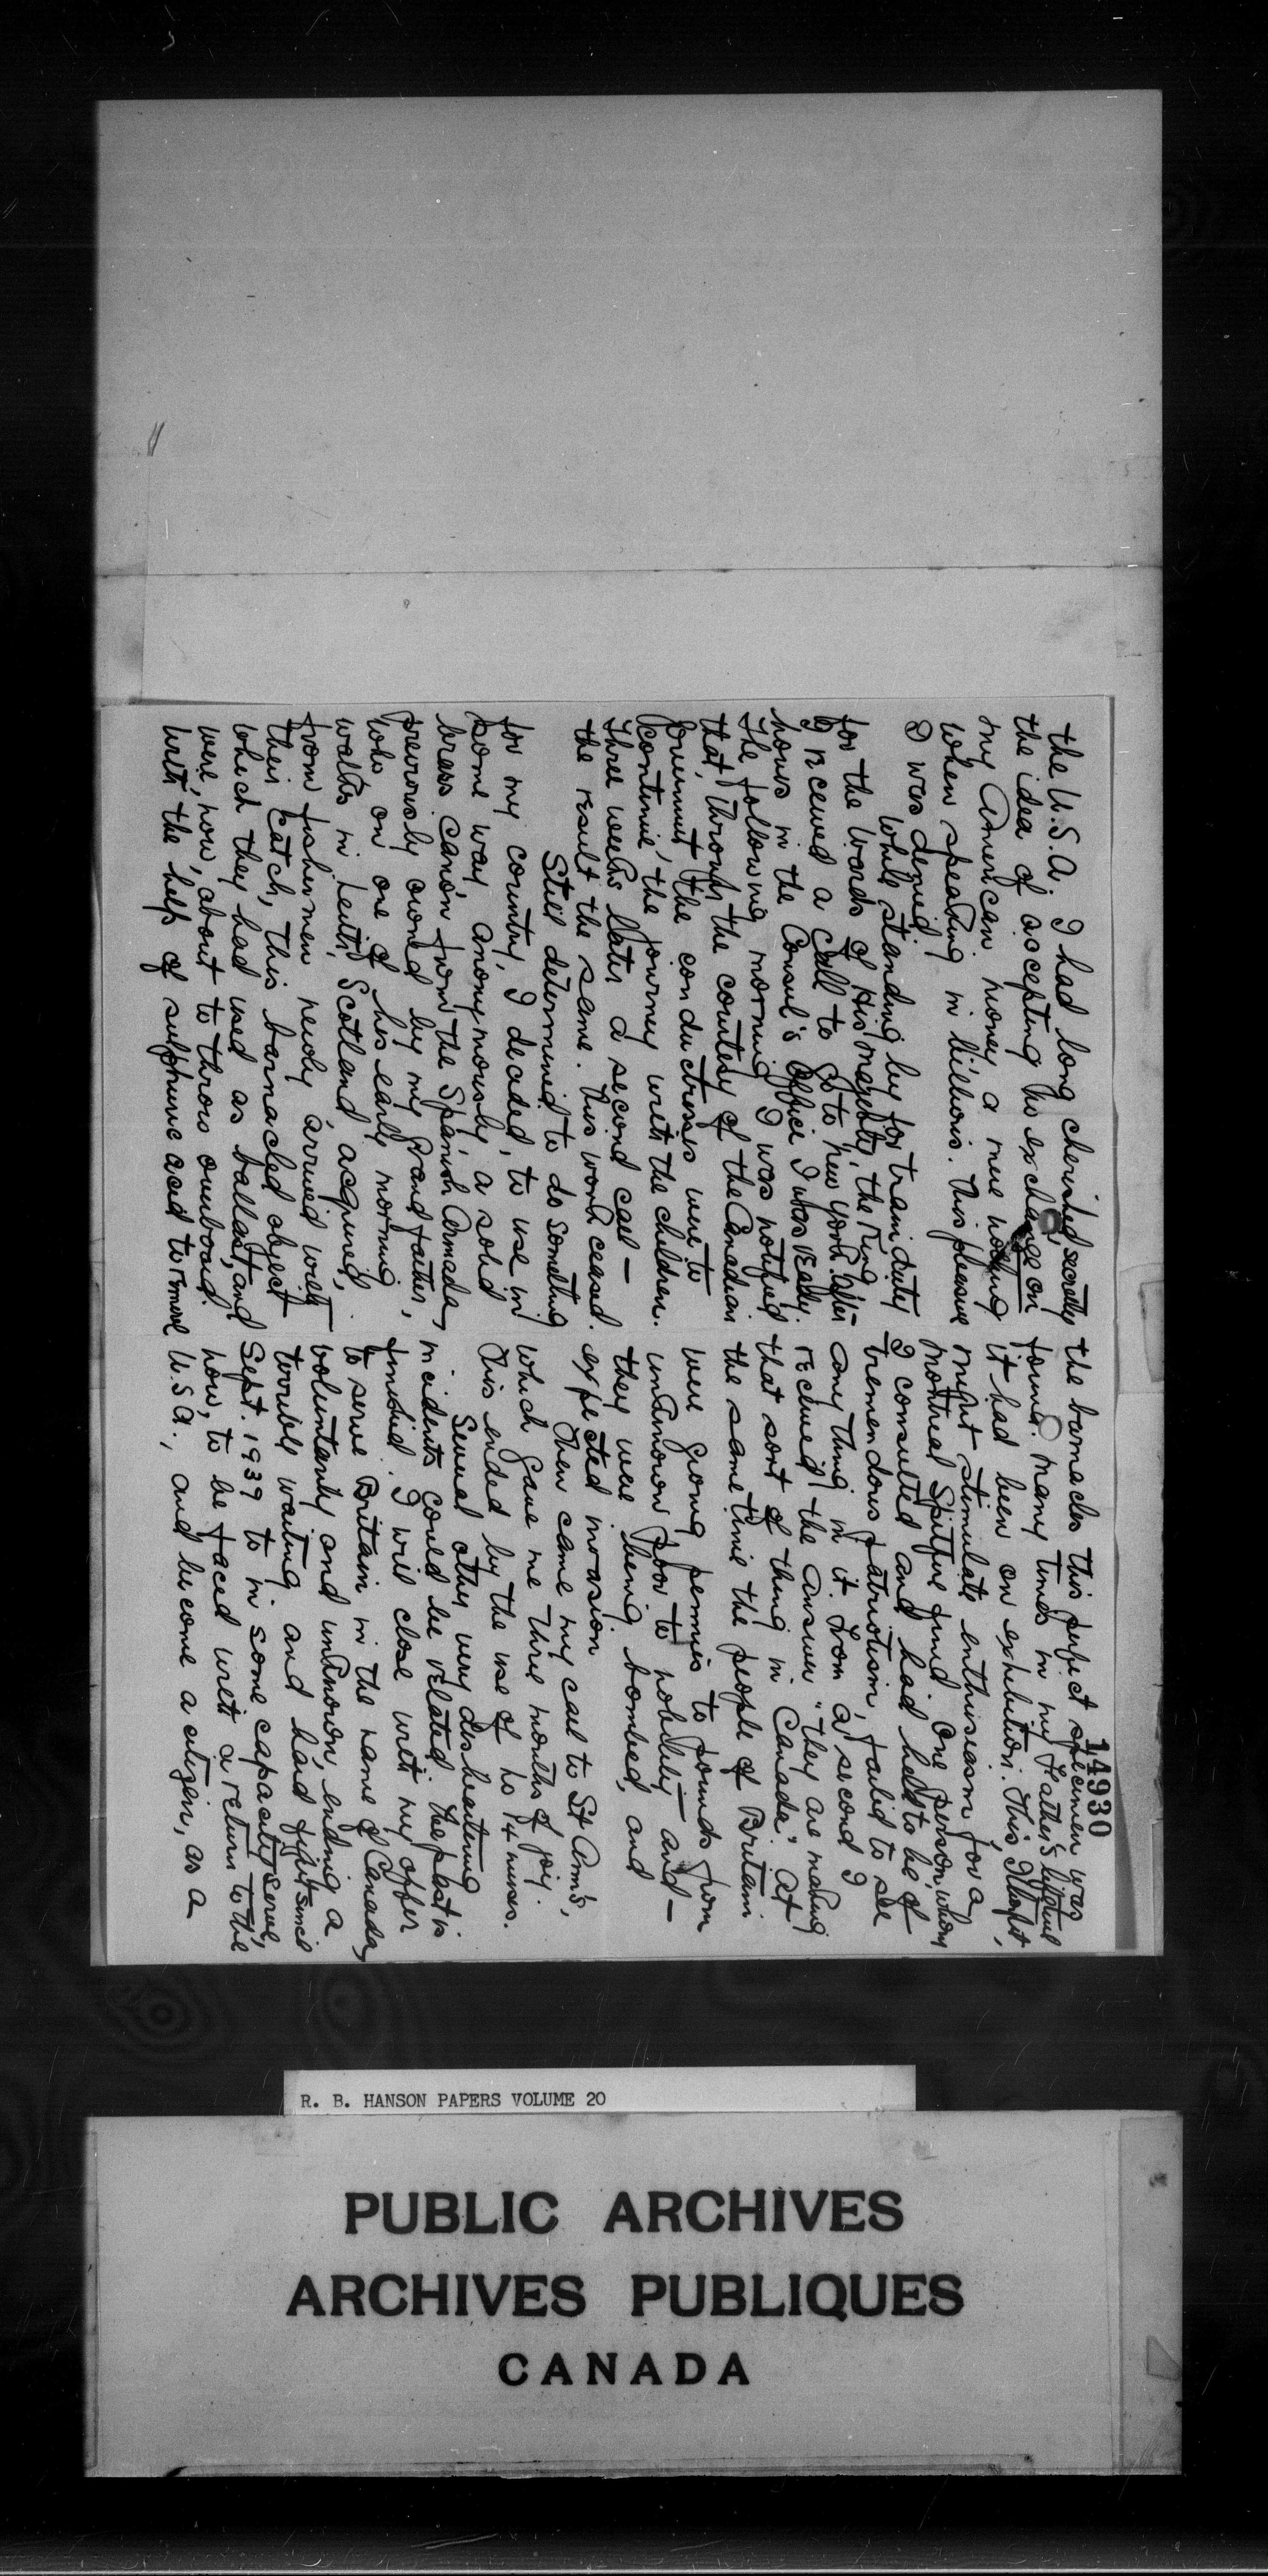 14930
the U.S.A. I had long cherished, secretly
the idea of accepting no exchange on
my American money, a mere nothing
when speaking in billions. This pleasure
I was denied.
While standing by for train duty
for the wards of His Majesty, the King
I received a call to go to New York. After
hours in the Consul's Office I was ready.
The following morning I was notified
that, through the courtesy of the Canadian
Government the conductresses were to
continue the journey with the children.
Three weeks later a second call —
the result the same. This work ceased.
Still determined to do something
for my country, I decided, to use in
some way, anonymously, a solid
brass canon from the Spanish Armada,
previously owned by my Grandfather,
who on one of his early morning
walks in Leith, Scotland acquired,
from fishermen newly arrived with
their catch, this barnacled object
which they had used as ballast, and
were, now, about to throw overboard.
With the help of sulphuric acid to remove
the barnacles this perfect specimen was
found. Many times in my Father's lifetime
it had been on exhibition. This, I thought,
might stimulate enthusiasm for a
Montreal Spitfire fund. One person, whom
I consulted and had held to be of
tremendous patriotism, failed to see
any thing in it. From a second I
received the answer "they are making
that sort of thing in Canada". At
the same time the people of Britain
were giving pennies to pounds from
unknown poor to nobility — and —
they were being bombed, and
expected invasion
Then came my call to St Ann's,
which gave me three months of joy.
This ended by the use of no 14 nurses.
Several other very disheartening
incidents could be related. The past is
finished. I will close with my offer
to serve Britain in the name of Canada,
voluntarily and unknown, ending a
terrible waiting and hard fight since
Sept. 1939 to in some capacity serve,
now, to be faced with a return to the
U.S.A., and become a citizen, as a
R. B. HANSON PAPERS VOLUME 20
PUBLIC ARCHIVES
ARCHIVES PUBLIQUES
CANADA